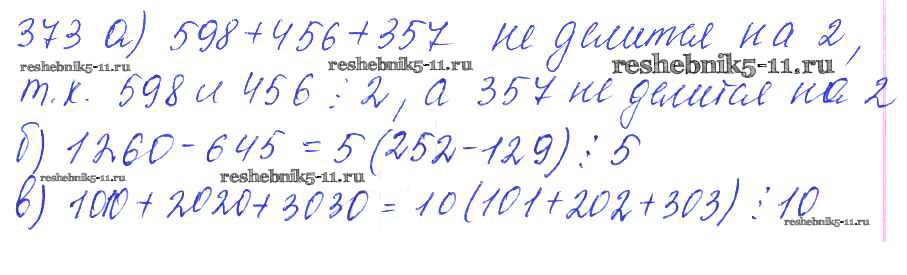 373 а) 598+456+357 не делится на 2,
reshebnik5-11.ru reshebnik5-11.ru reshebnik5-11.ru
т.к. 598 и 456 ⋮ 2, а 357 не делится на 2
б) 1260-645 = 5(252-129) ⋮ 5
reshebnik5-11.ru reshebnik5-11.ru
в) 1010+2020+3030 = 10(101+202+303) ⋮ 10
reshebnik5-11.ru